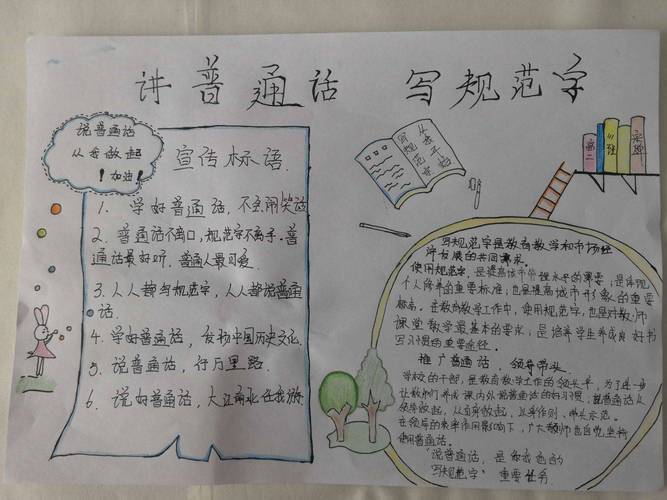 讲普通话 写规范字
说普通话
从我做起
！加油！
宣传标语.
1. 学好普通话，不会闹笑话
2. 普通话不离口，规范字不离手. 普
通话最好听. 普通人最可爱.
3. 人人都写规范字，人人都说普通
话.
4. 学好普通话，发扬中国历史文化.
5. 说普通话，行万里路.
6. 说好普通话，大江南北任我游.
从我开始
写规范字
高二
三班
写规范字是教育教学和市场经
济发展的共同需求.
使用规范字，是提高城市管理水平的需要；是评现
个人修养的重要标准；也是提高城市形象的重要
标志。在教育教学工作中，使用规范字，也是对教师
课堂教学最基本的要求；是培养学生养成良好书
写习惯的重要途径.
推广普通话，领导带头.
学校的干部，是教育教学工作的领头羊，为了进一步
让教师们养成课内外说普通话的好习惯，普通话从
领导做起，从自身做起，以身作则，带头示范。
在领导的表率作用影响下，广大教师也自觉坚持
使用普通话。
"说普通话，是你我他的
写规范字"重要任务